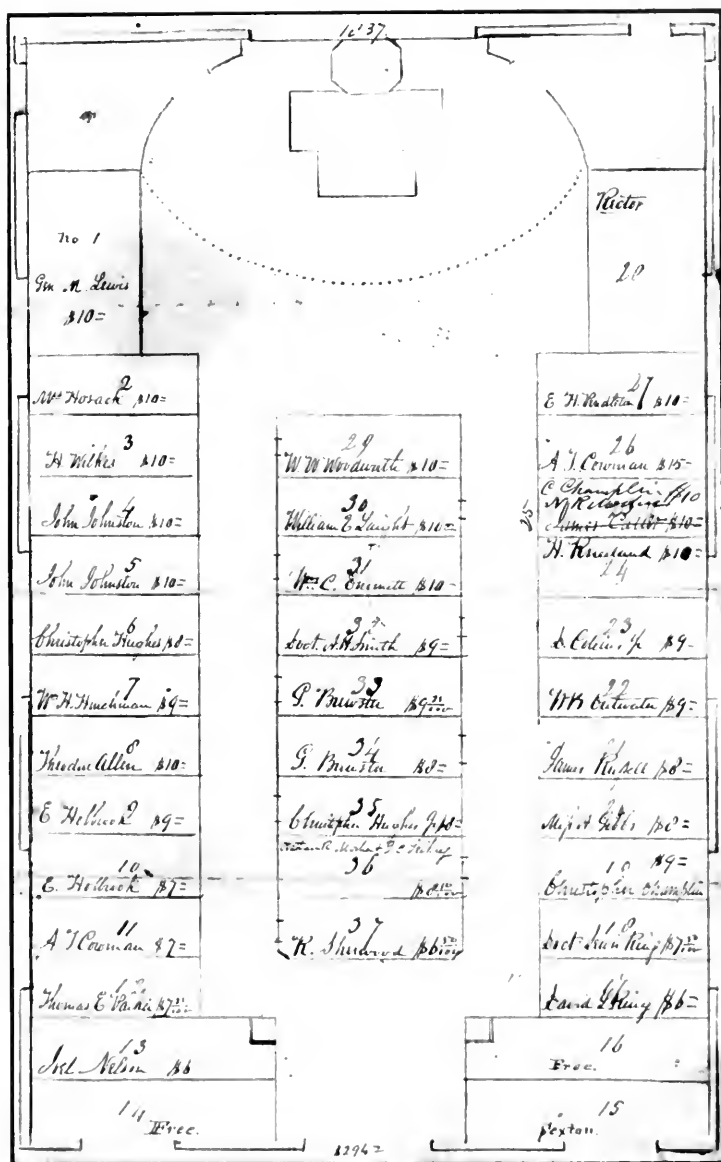 1837
no 1
Gen M. Lewis
$10=
2
Mrs Hosack $10=
3
H. Wilkes $10=
4
John Johnston $10=
5
John Johnston $10=
6
Christopher Hughes $8=
7
Wm H. Hinchman $9=
8
Theodore Allen $10=
9
E Holbrook $9=
10
E. Holbrook $7=
11
A T Cowman $7=
12
Thomas E Parker $7 50/100
13
Joel Nelson $6
14 Free.
29
W. W. Woodworth $10=
30
William E Laight $10=
31
Wm C. Emmett $10=
32
Doct. A. H. Smith $9=
33
G. Brewster
34
G. Brewster $8=
35
Christopher Hughes Jr $8=
36
37
R. Sherwood $6 50/100
Rector
28
27
E. H. Pendleton $10=
26
A. T. Cowman $15=
C Champlin $10
25
James $10=
H. Kneeland $10=
24
23
D. Jr $9-
22
$9=
James Russell $8=
Miss A. Gibbs $8=
19 $9=
Christopher Champlin
18
Doct. King $7 50/100
David King $6=
16
Free.
15
Sexton.
$294=